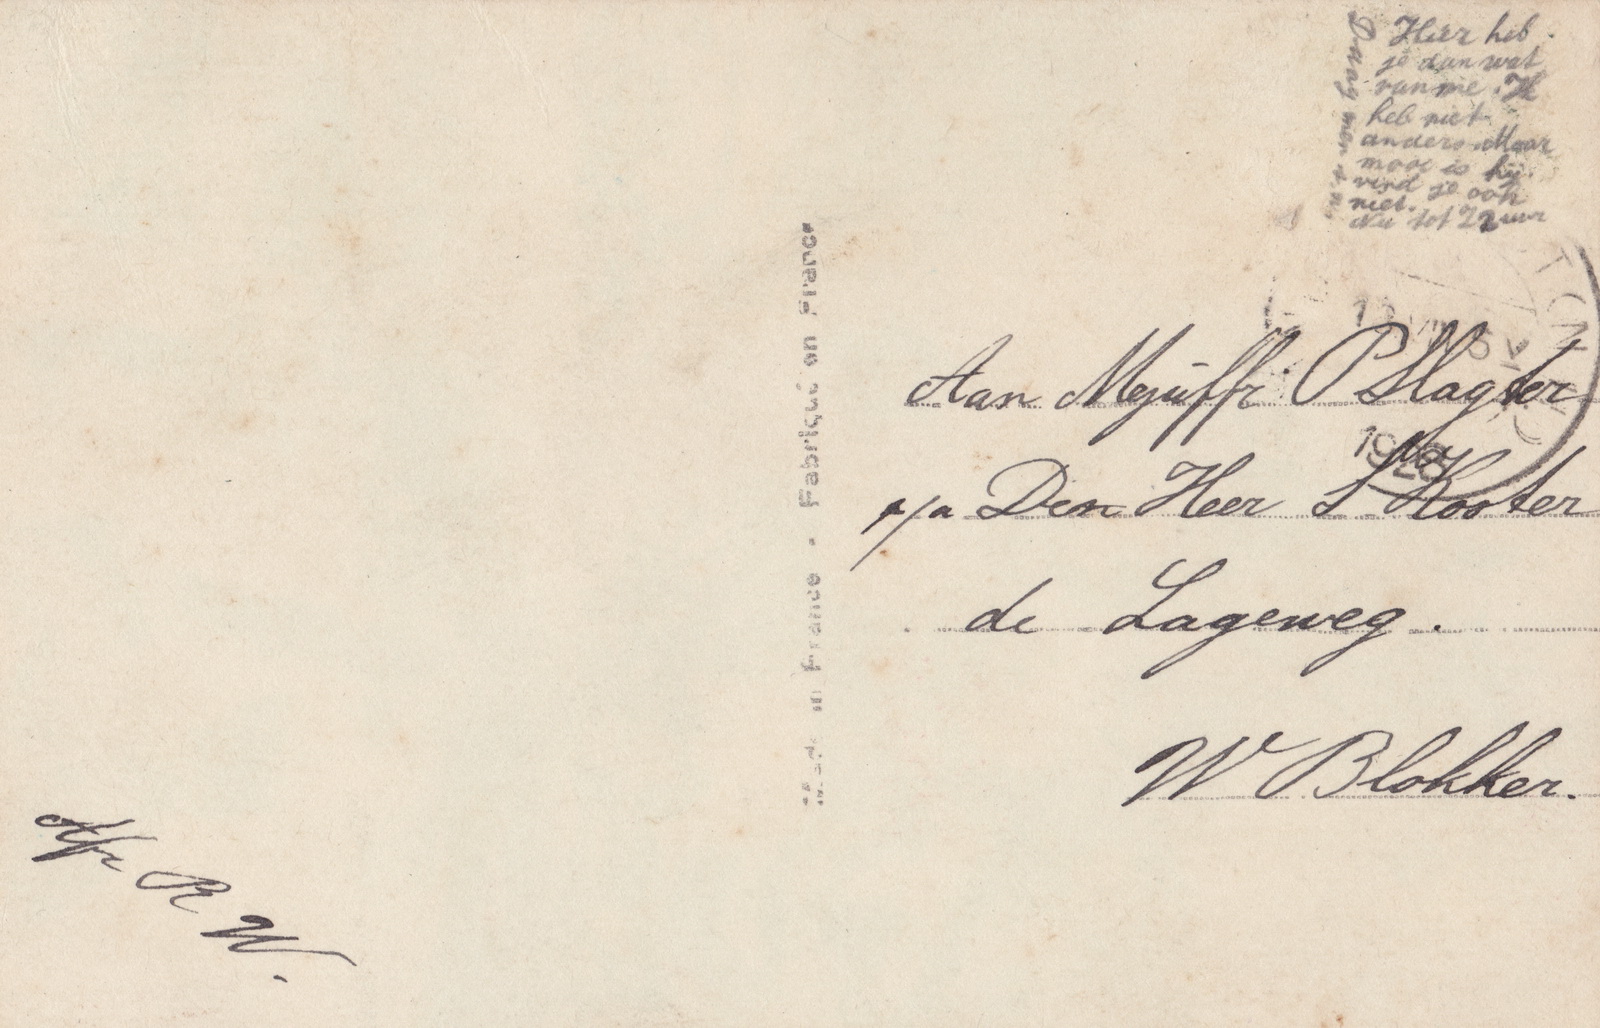 Hier heb
je dan wat
van me. Ik
heb niet
anders. Maar
mooi is hij
vind je ook
niet.
Nu tot 72 uur
Daag
Made in France - Fabriqué en France
TON
1926
Aan Mejuffr P Slagter
p/a Den Heer S Kooter
de Lageweg.
W Blokker.
Afz R W.